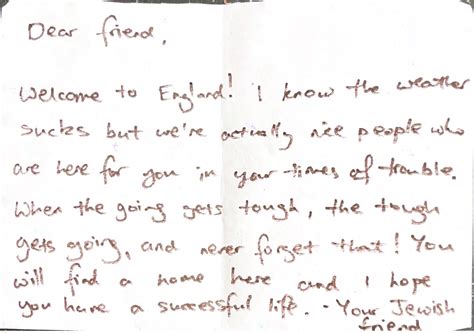 Dear friend,
Welcome to England! I know the weather
sucks but we're actually nice people who
are here for you in your times of trouble.
When the going gets tough, the tough
gets going, and never forget that! You
will find a home here and I hope
you have a successful life. - Your Jewish
friend